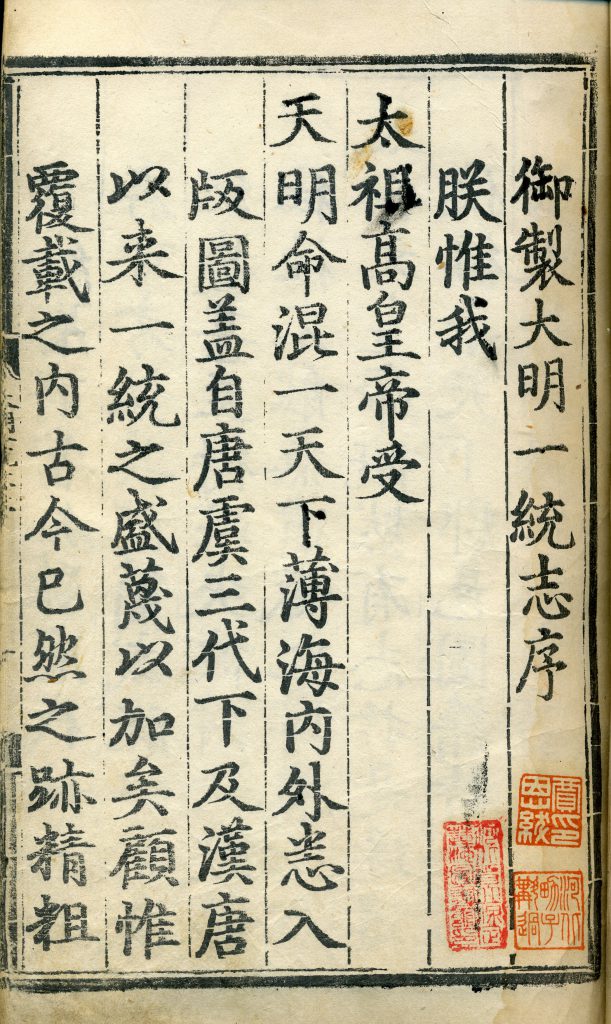 御製大明一統志序
朕惟我
太祖高皇帝受
天明命混一天下薄海內外悉入
版圖盖自唐虞三代下及漢唐
以来一統之盛蔑以加矣顧惟
覆載之内古今已然之跡精粗